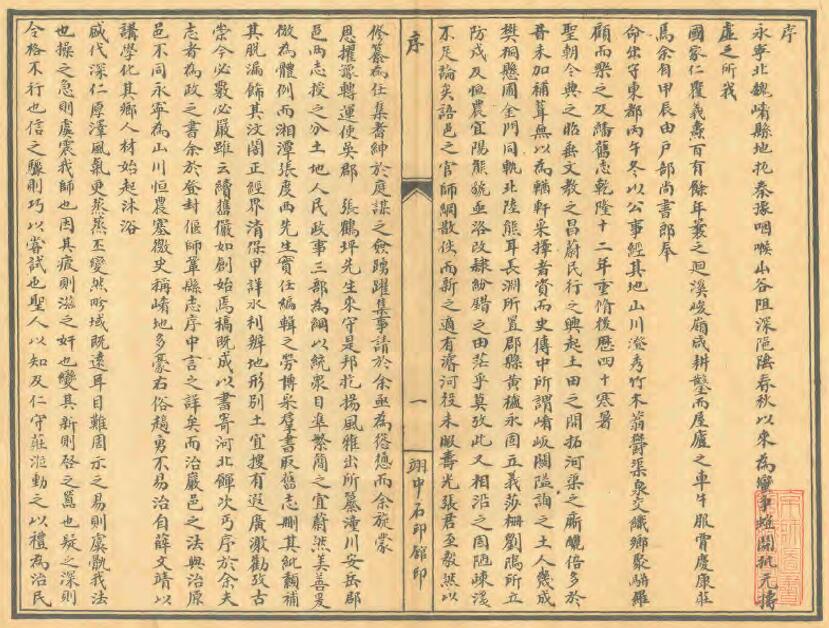 序
永寧北魏崤縣地扼秦豫咽喉山谷阻深阨隘春秋以來為戰爭蛾聞抗元擣
虛之所我
國家仁覆義燾百有餘年曩之迴溪峻嶺咸耕鑿而屋廬之車牛服賈慶康莊
焉余自甲辰由戶部尚書郎奉
命出守東都丙午冬以公事經其地山川澄秀竹木蓊鬱渠泉交織鄉聚駢羅
顧而樂之及繙舊志乾隆十二年重脩後歷四十寒暑
聖朝令典之昭垂文教之昌蔚民行之興起土田之開拓河渠之斸皭倍多於
昔未加補葺無以為輶軒采擇者資而史傳中所謂崤岅關隘詢之土人幾成
樊桐懸圃金門同軌北陸熊耳長淵所置郡縣黃櫨永固立義莎柵劉隝所立
防戍及恒農宜陽熊號亟洛改隸紛錯之由茫乎莫攷此又相沿之固陋竦漏
不足論矣語邑之官師網散佚而新之適有濬河役未暇壽光張君至毅然以
序
一
翊中石印館印
修纂為任集耆紳於庭謀之僉踴躍集事請於余亟為慫恿而余旋蒙
恩擢豫轉運使吳郡 張鶴坪先生來守是邦扢揚風雅出所纂潼川安岳郡
邑兩志授之分土地人民政事三部為綱以統衆目準繁簡之宜蔚然美善爰
倣為體例而湘潭張度西先生實任編輯之勞博采羣書取舊志刪其紕纇補
其脫漏飾其汶闇正經界清保甲詳水利辨地形別土宜搜有遐廣激勸攷古
崇今必覈必嚴雖云續舊儼如創始焉稿既成以書寄河北鐸次丐序於余夫
志者為政之書余於登封偃師鞏縣志序中言之詳矣而治嚴邑之法與治原
邑不同永寧為山川恒農塞徼史稱崤地多豪右俗趫勇不易治自薛文靖以
講學化其鄉人材始起沐浴
盛代深仁厚澤風氣更蒸蒸丕變然畍域既遠耳目難周示之易則虞翫我法
也操之急則虞震我師也因其疲則滋之奸也變其新則啓之囂也疑之深則
令格不行也信之驟則巧以嘗試也聖人以知及仁守莊涖動之以禮為治民